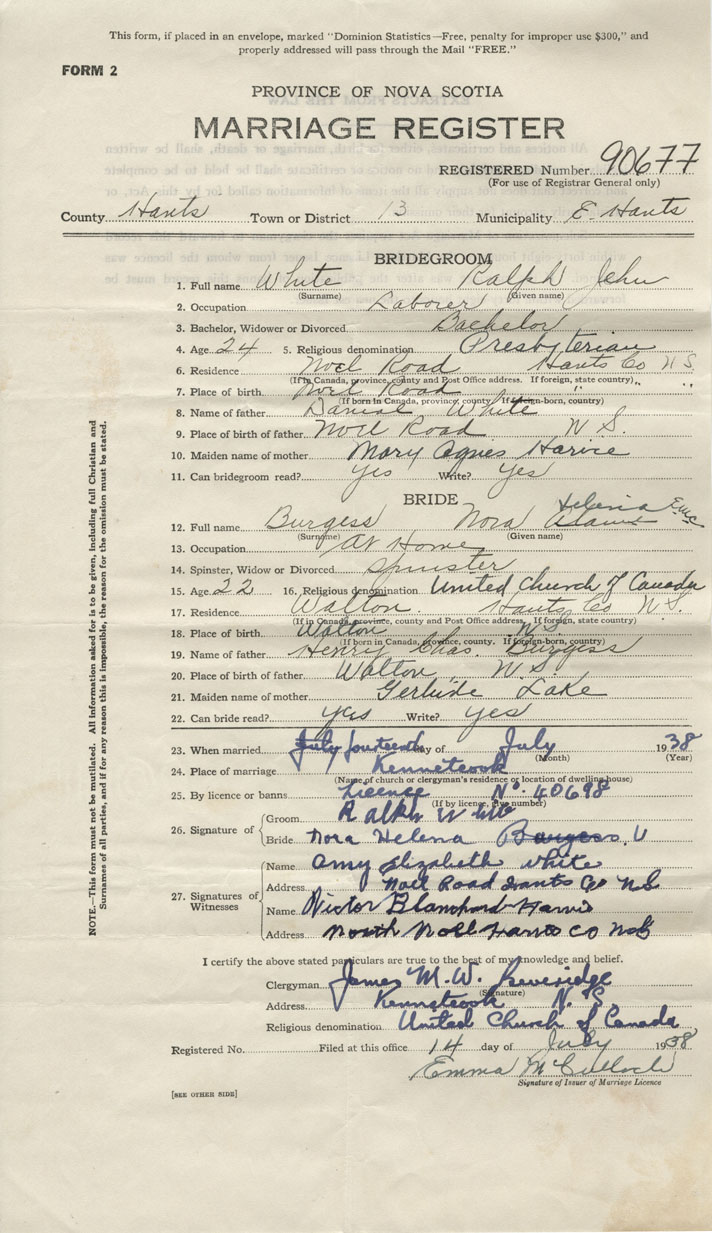 This form, if placed in an envelope, marked "Dominion Statistics—Free, penalty for improper use $300," and
properly addressed will pass through the Mail "FREE."
FORM 2
PROVINCE OF NOVA SCOTIA
MARRIAGE REGISTER
REGISTERED Number 90677
(For use of Registrar General only)
County Hants Town or District 13 Municipality E. Hants
BRIDEGROOM
1. Full name White Ralph John
(Surname) (Given name)
2. Occupation Laborer
3. Bachelor, Widower or Divorced Bachelor
4. Age 24 5. Religious denomination Presbyterian
6. Residence Noel Road Hants Co N.S.
(If in Canada, province, county and Post Office address. If foreign, state country)
7. Place of birth Noel Road " "
(If born in Canada, province, county. If foreign-born, country)
8. Name of father Danial White
9. Place of birth of father Noel Road N.S.
10. Maiden name of mother Mary Agnes
11. Can bridegroom read? Yes Write? Yes
BRIDE
Helena E.Mc
12. Full name Burgess Nora
(Surname) (Given name)
13. Occupation At Home
14. Spinster, Widow or Divorced Spinster
15. Age 22 16. Religious denomination United Church of Canada
17. Residence Walton Hants Co N.S.
(If in Canada, province, county and Post Office address. If foreign, state country)
18. Place of birth Walton N.S.
(If born in Canada, province, county. If foreign-born, country)
19. Name of father Henry Chas. Burgess
20. Place of birth of father Walton, N.S.
21. Maiden name of mother Gertrude Lake
22. Can bride read? yes Write? yes
23. When married July fourteenth day of July 1938
(Month) (Year)
24. Place of marriage Kennetcook
(Name of church or clergyman's residence or location of dwelling house)
25. By licence or banns License No. 40698
(If by license, give number)
26. Signature of
Groom Ralph White
Bride Nora Helena Burgess
27. Signatures of Witnesses
Name Amy Elizabeth White
Address Noel Road Hants Co N.S.
Name Victor Blanchard Harvie
Address North Noel Hants Co N.S.
I certify the above stated particulars are true to the best of my knowledge and belief.
Clergyman James M.W. Leveridge
(Signature)
Address Kennetcook N.S.
Religious denomination United Church of Canada
Registered No. Filed at this office 14 day of July 1938
Emma McCulloch
Signature of Issuer of Marriage Licence
[SEE OTHER SIDE]
NOTE.—This form must not be mutilated. All information asked for is to be given, including full Christian and
Surnames of all parties, and if for any reason this is impossible, the reason for the omission must be stated.